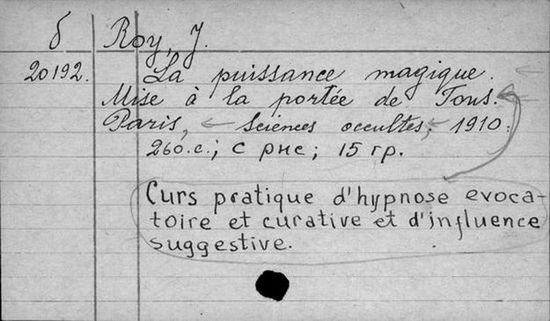 б Roy, J.
20192. La puissance magique.
Mise à la portée de Tous.
Paris, Sciences occultes, 1910.
260.с.; с рис; 15 гр.
Curs pratique d'hypnose evoca-
toire et curative et d'influence
suggestive.